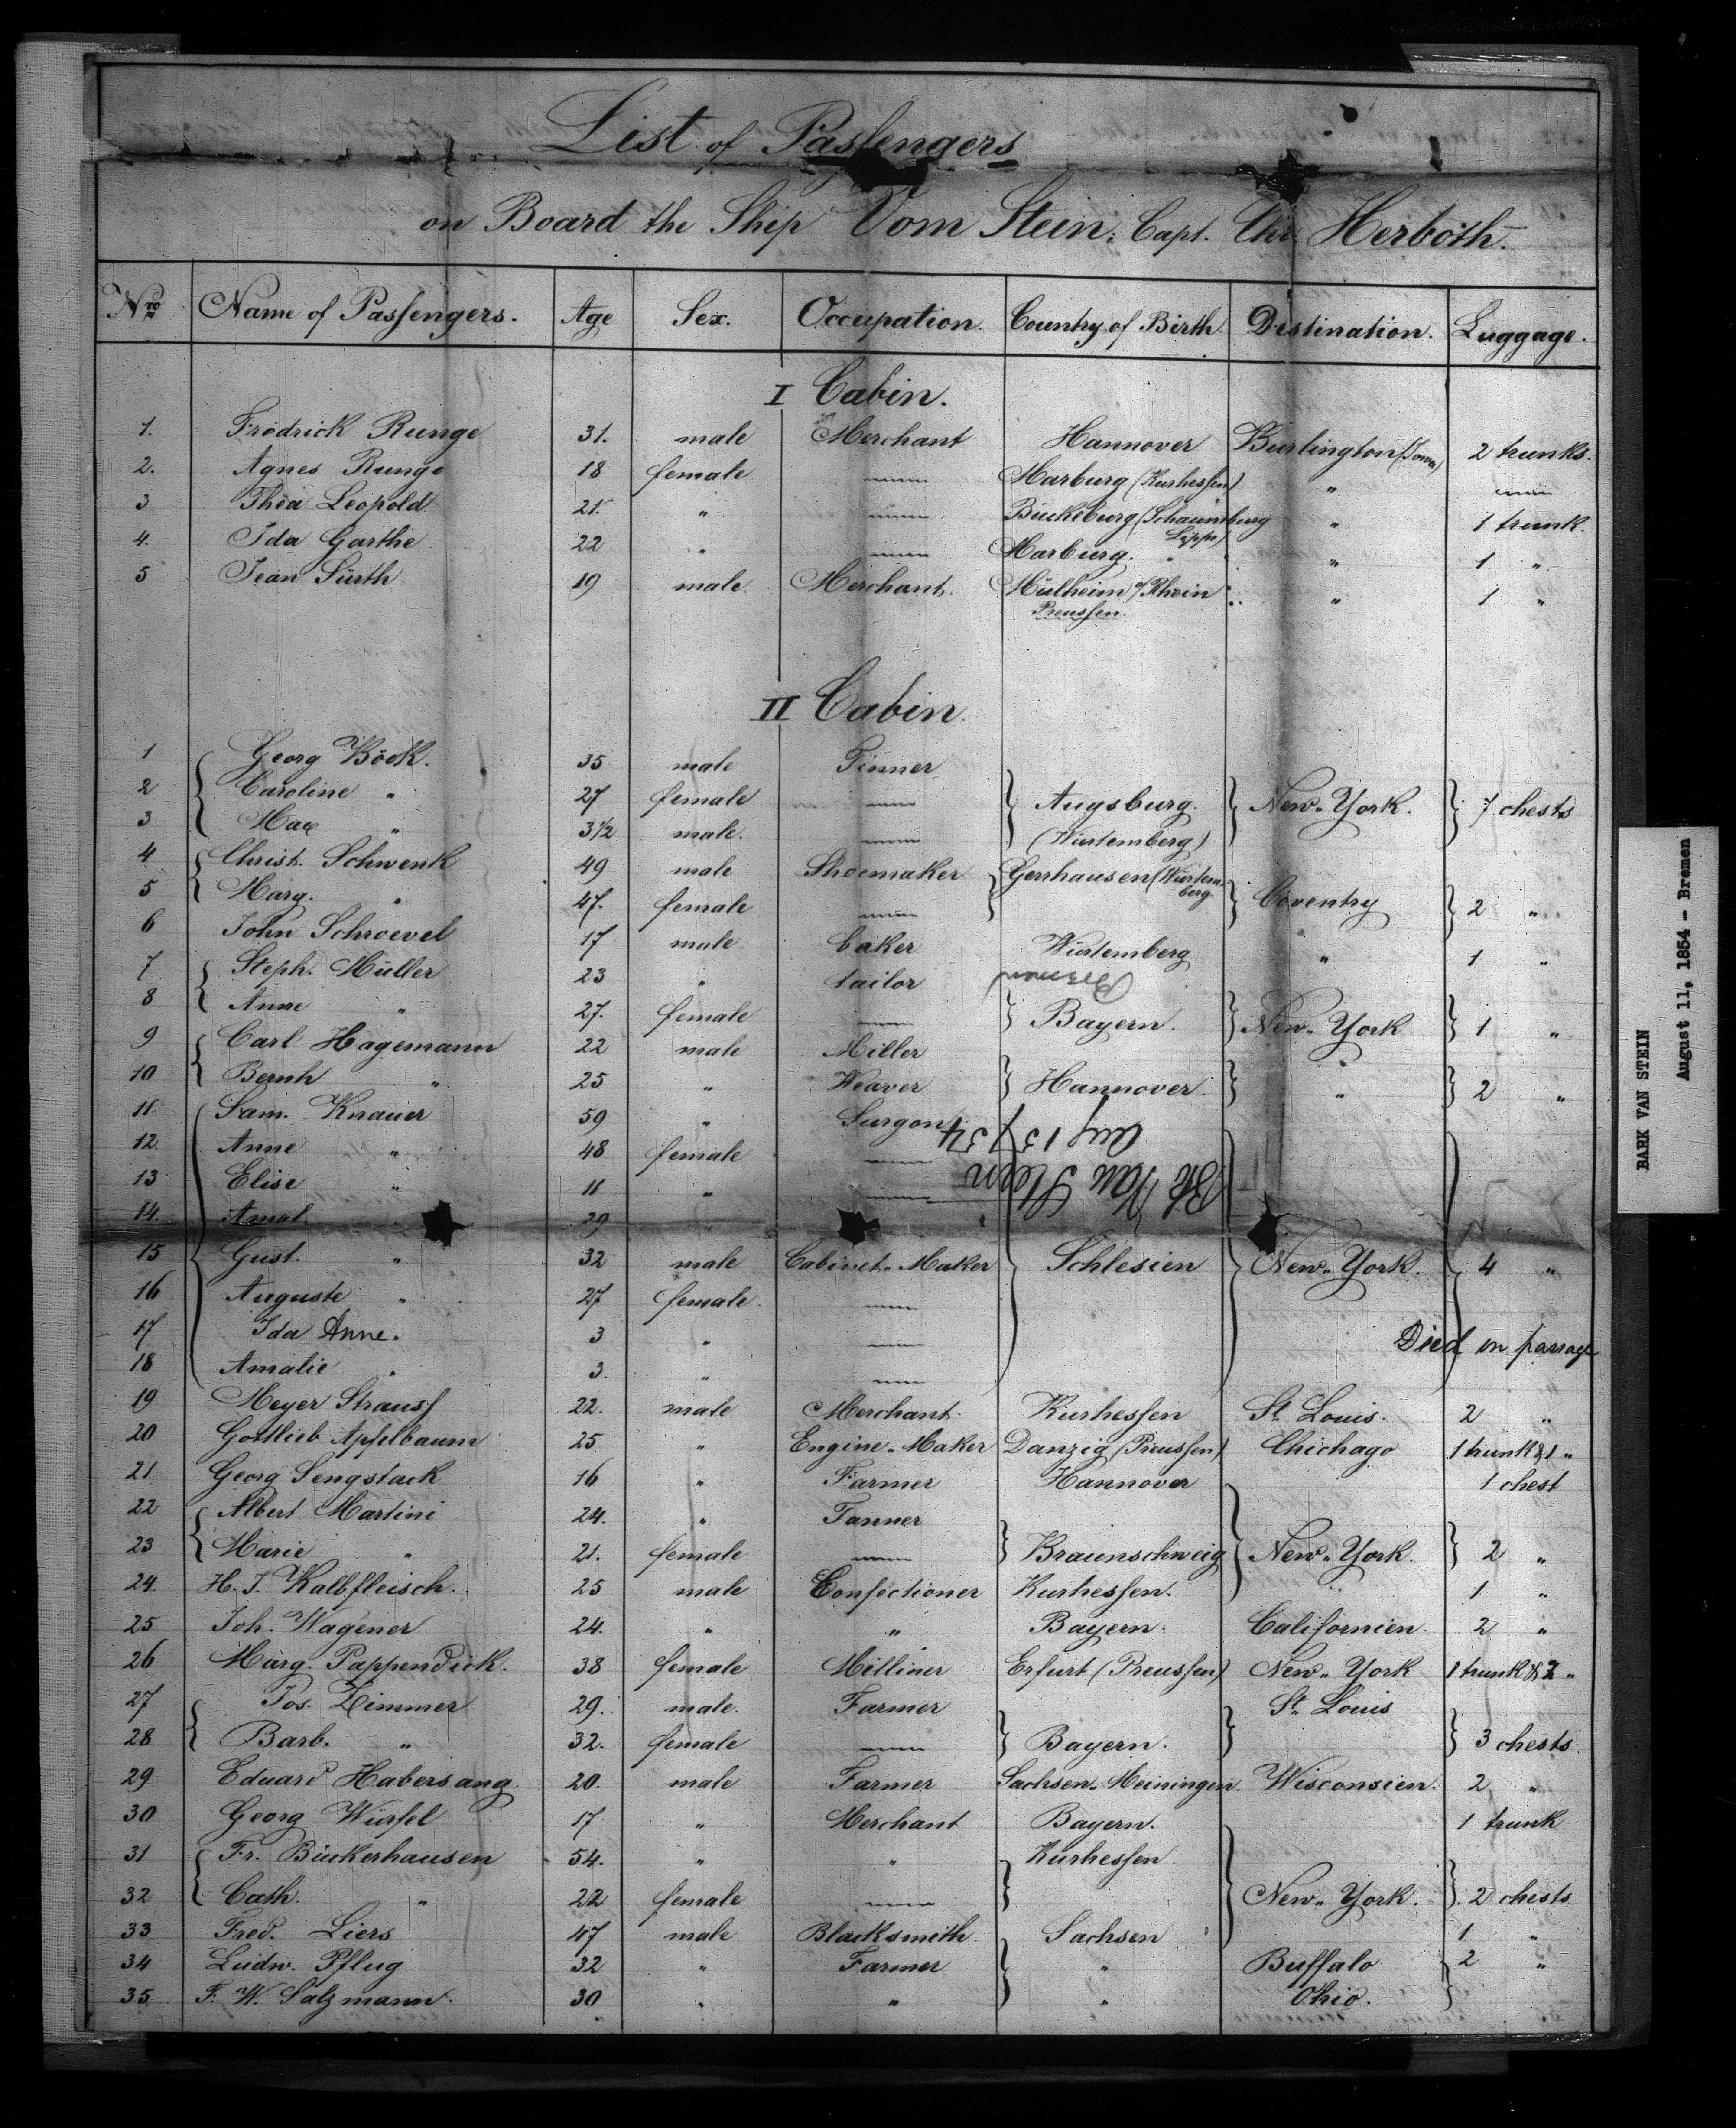 List of Passengers
on Board the Ship Vom Stein: Capt. Chr. Herboth.
Nro Name of Passengers. Age Sex. Occupation. Country of Birth. Destination. Luggage.
I Cabin.
1. Fredrick Runge 31. male Merchant Hannover Burlington (Iowa) 2 trunks.
2. Agnes Runge 18 female Marburg (Kurhessen) "
3 Thea Leopold 21. " Bückeburg (Schaumburg Lippe) " 1 trunk.
4. Ida Garthe 22 " Marburg. " " 1 "
5 Jean Sürth 19 male Merchant. Mülheim a/Rhein Preussen. " 1 "
II Cabin.
1 Georg Böck. 35 male Tinner
2 Caroline " 27 female Augsburg. New-York. 7 chests
3 Max " 3 1/2 male. (Würtemberg)
4 Christ. Schwenk 49 male Shoemaker Gerrhausen (Würtemberg
5 Marg. " 47. female Coventry 2 "
6 John Schroevel 17 male baker Würtemberg " 1 "
7 Steph. Müller 23 " tailor
Bremen
8 Anne " 27. female Bayern. New-York 1 "
9 Carl Hagemann 22 male Miller
10 Bernh " 25 " Weaver Hannover. " 2 "
11. Sam. Knauer 59 " Surgon
Aug 15/54
12. Anne " 48 female
Bk Van Stein
13. Elise " 11 "
14. Amal. " 29
15 Gust. " 32 male Cabinet-Maker Schlesien New-York. 4 "
16 Auguste " 27 female
17 Ida Anne. 3 " Died on passage
18 Amalie " 3. "
19 Meyer Strauss 22. male Merchant. Kurhessen St. Louis. 2 "
20 Gottlieb Apfelbaum 25. " Engine-Maker Danzig (Preussen) Chichago 1 trunk & 1 "
21 Georg Sengstack 16 " Farmer Hannover 1 chest
22 Albert Martini 24. " Tanner
23 Marie " 21. female Braunschweig New-York. 2 "
24. H. J. Kalbfleisch. 25 male Confectioner Kurhessen. 1 "
25 Joh. Wagener 24. " " Bayern. Californien. 2 "
26 Marg. Pappendick. 38 female Milliner Erfurt (Preussen) New-York 1 trunk & 2 "
27 Jos. Zimmer 29. male. Farmer St. Louis
28 Barb. " 32. female Bayern. 3 chests
29 Eduard Habersang 20. male Farmer Sachsen-Meiningen. Wisconsien. 2 "
30 Georg Würfel 17. " Merchant Bayern. 1 trunk
31 Fr. Bückerhausen 54. " " Kurhessen
32 Cath. " 22 female New-York. 2 chests
33 Fred. Liers 47 male Blacksmith Sachsen 1 "
34 Ludw. Pflug 32 " Farmer " Buffalo 2 "
35 F. W. Salzmann. 30 " " " Ohio.
BARK VAN STEIN
August 11, 1854 - Bremen